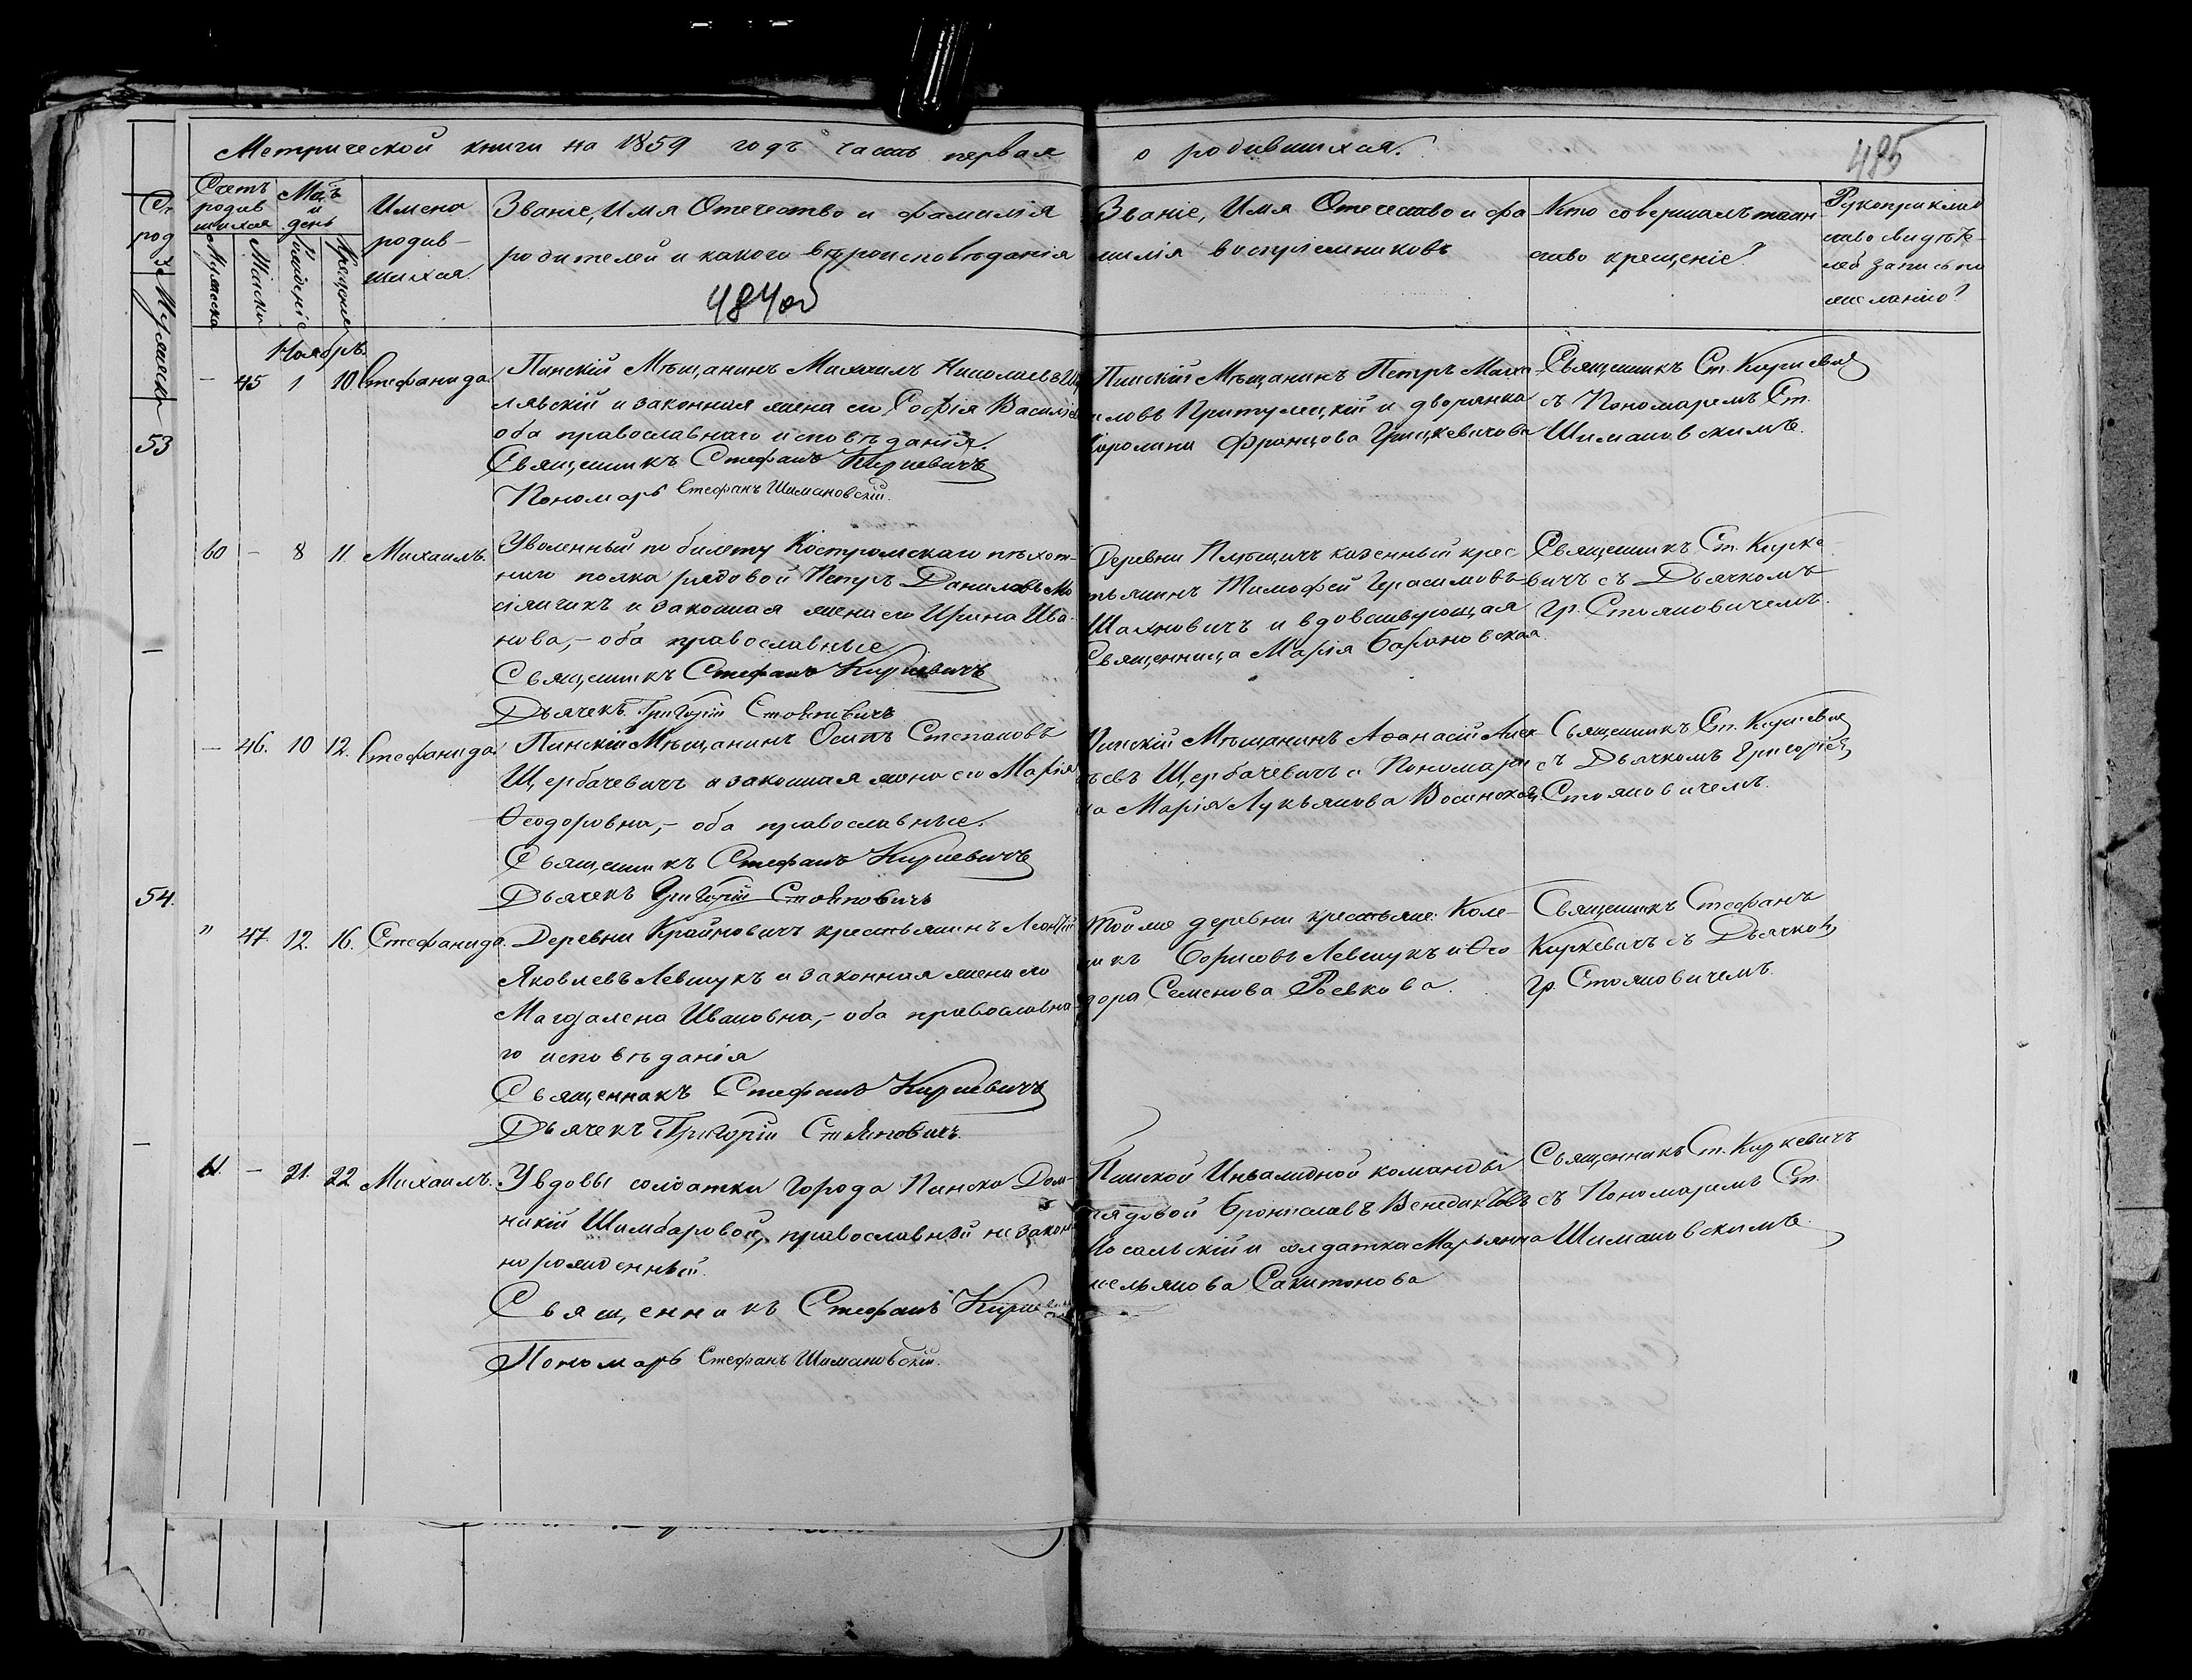 Метрической книги на 1859 годъ часть первая
о родившихся.
485
Счетъ родившихся
Мѣц и день
Имена родив-
шихся.
Званіе, Имя Отечество и фамилія
родителей и какого вѣроисповѣданія
484 об
Званіе, Имя Отечество и фа
милія воспріемниковъ
Кто совершалъ таин
ство крещеніе?
Рукоприклад
ство свидѣте-
лей записи по
желанію?
Мужеска
Женска
Рожденіе
Крещеніе
Ноябрь.
– 45 1 10 Стефанида
Пинскій Мѣщанинъ Михаилъ Николаевъ
лявскій и законная жена его Софія Василіе
оба православнаго исповѣданія.
Священникъ Стефанъ Киркевичъ
Пономарь Стефанъ Шимановскій.
Пинскій Мѣщанинъ Петръ Миха
иловъ Притулецкій и дворянка
Каролина Францова Грицкевичова
Священникъ Ст. Киркевич
съ Пономаремъ Ст.
Шимановскимъ.
53
60 – 8 11 Михаилъ.
Уволенный по билету Костромскаго пѣхот-
наго полка рядовой Петръ Даниловъ Мо
и законная жена его Ирина Ива-
нова, – оба православные
Священникъ Стефанъ Киркевичъ
Дьячекъ Григорій Стояновичъ
Деревни Плещичъ казенный крес
тьянинъ Тимофей Герасимовъ
Шахновичъ и вдовствующая
Священница Марія Барановская
Священникъ Ст. Кирке-
вичъ съ Дьячкомъ
Гр. Стояновичемъ.
– 46. 10 12. Стефанида
Пинскій Мѣщанинъ Осипъ Степановъ
Щербачевичъ и законная жена его Марія
Ѳеодоровна, – оба православные.
Священникъ Стефанъ Киркевичъ
Дьячекъ Григорій Стояновичъ
Пинскій Мѣщанинъ Аѳанасій Алек
ѣевъ Щербачевичъ и Пономари
ха Марія Лукьянова
Священникъ Ст. Киркевич
съ Дьячкомъ Григоріем
Стояновичемъ.
54.
" 47 12. 16. Стефанида
Деревни Крайновичъ крестьянинъ Леонтій
Яковлевъ Левшукъ и законная жена его
Магдалена Ивановна, – оба православна-
го исповѣданія
Священникъ Стефанъ Киркевичъ
Дьячекъ Григорій Стояновичъ.
Той же деревни крестьяне: Коле-
никъ Борисовъ Левшукъ и Ѳео
дора Семенова Роевкова.
Священникъ Стефанъ
Киркевичъ съ Дьячком
Гр. Стояновичемъ.
61. – 21. 22 Михаилъ.
У вдовы солдатки города Пинска Дом-
никіи Шимбаровой, православный незакон
норожденный.
Священникъ Стефанъ Киркевичъ
Пономарь Стефанъ Шимановскій.
Пинской Инвалидной команды
рядовой Брониславъ Венедиктовъ
и солдатка Марьянна
Сахитонова
Священникъ Ст. Киркевичъ
съ Пономаремъ Ст.
Шимановскимъ.